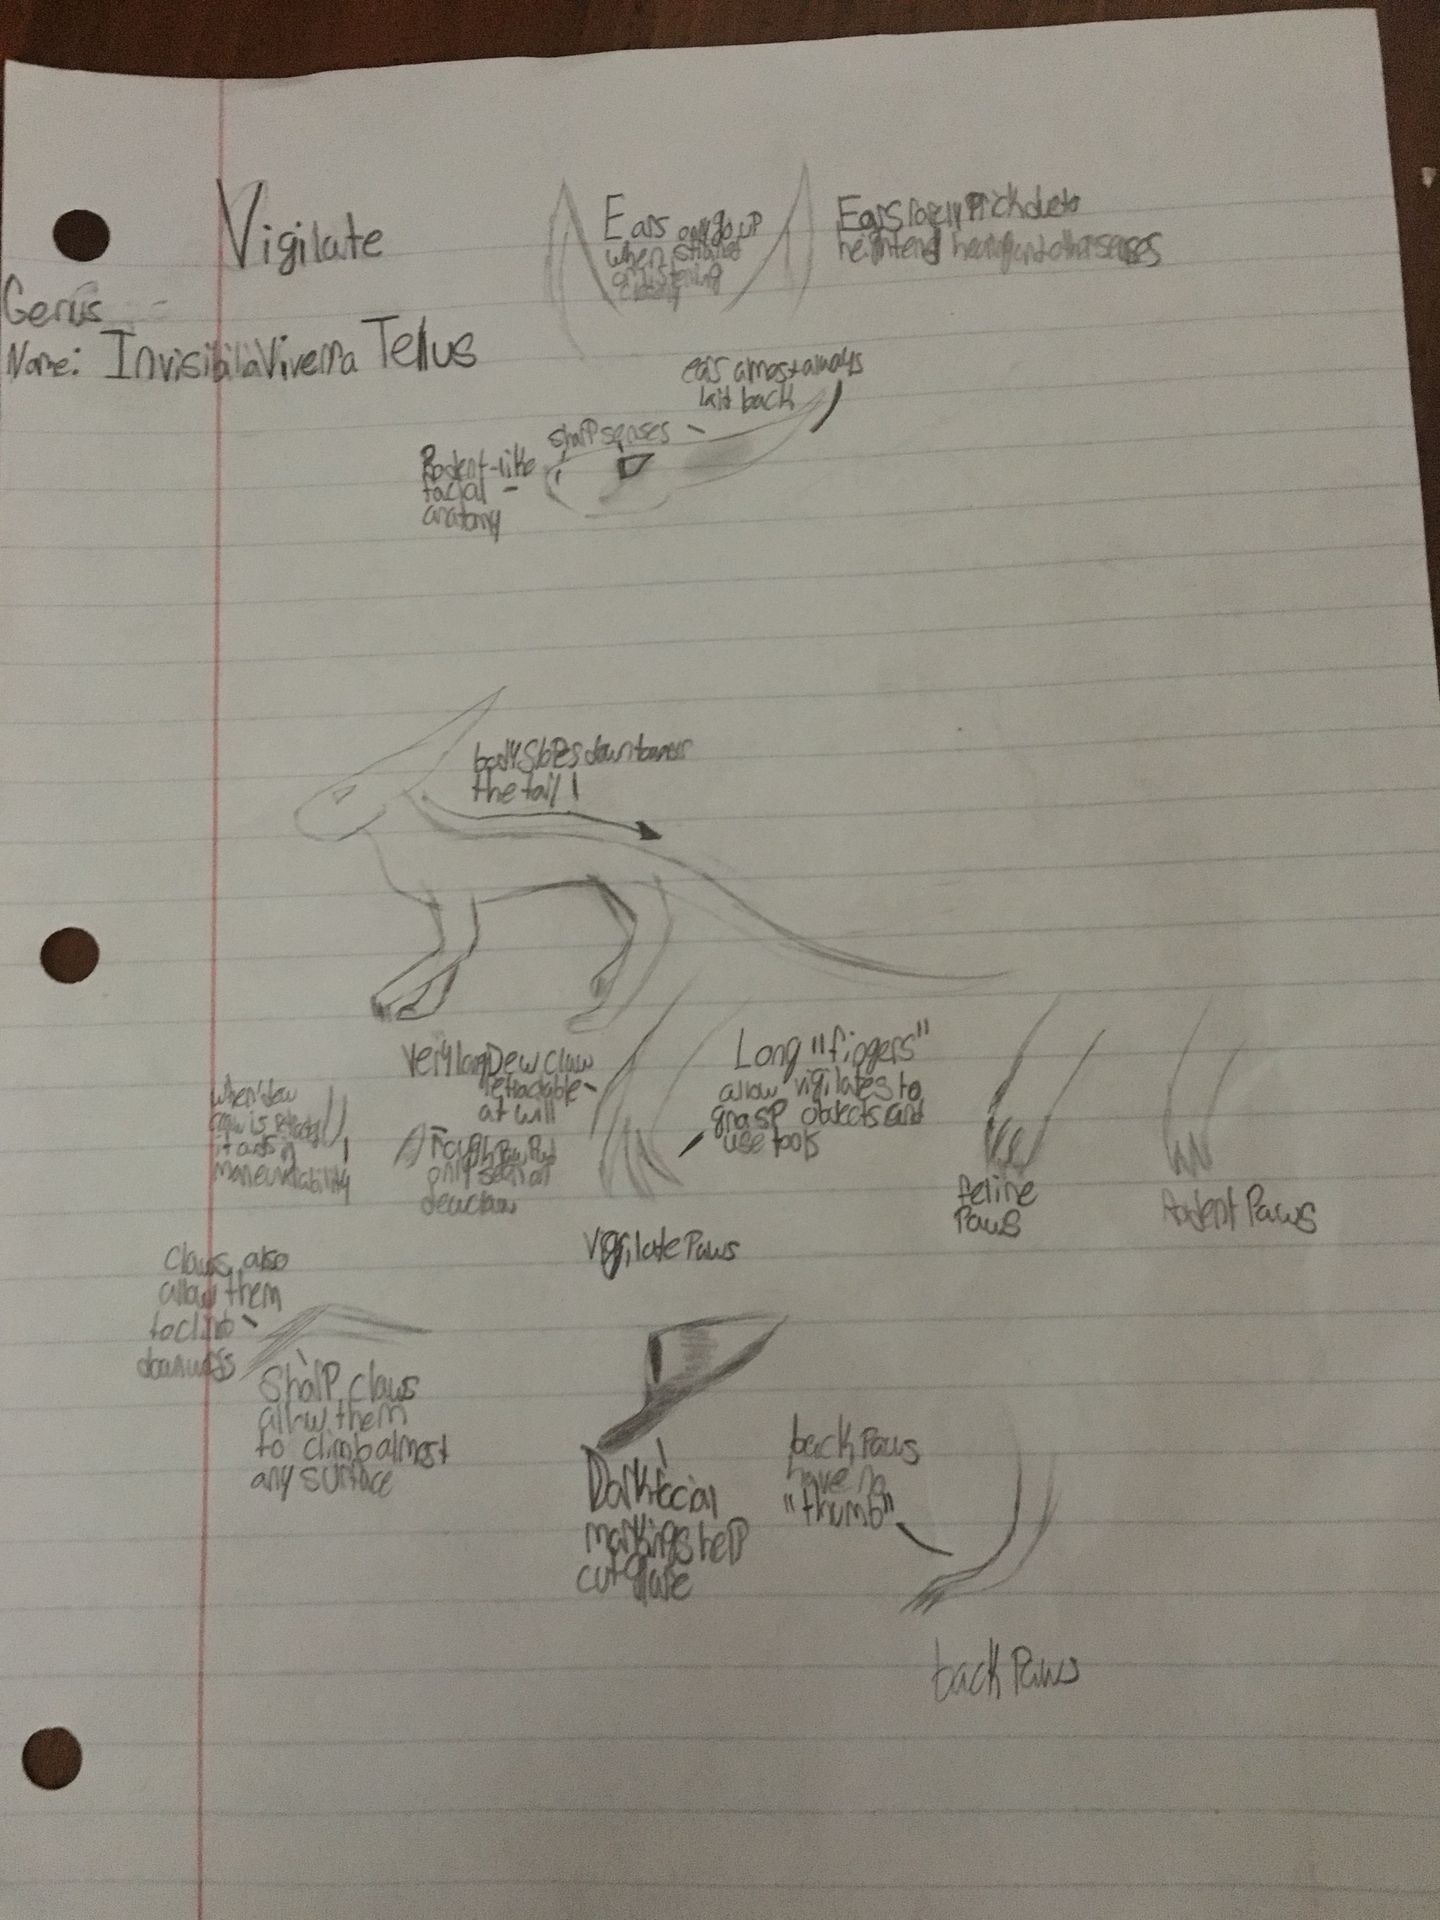 Vigilate
Genus
Name: Invisibilia Viverra Tellus
Ears only go up
when startled
or listening
closely
Ears rarely Prick due to
heightend hearing and other senses
ears almost always
laid back
sharp senses
Rodent-like
facial
anatomy
body slopes down towards
the tail!
Very long Dew claw
retractable
at will
when dew
claw is retracted
it aids in
maneuverability
Rough Paw Pad
only seen on
dewclaw
Long "fingers"
allow vigilates to
grasp objects and
use tools
Vigilate Paws
feline
Paws
Rodent Paws
Claws also
allow them
to climb
Sharp claws
allow them
to climb almost
any surface
Dark facial
markings help
cut glare
back Paws
have no
"thumb"
back Paws